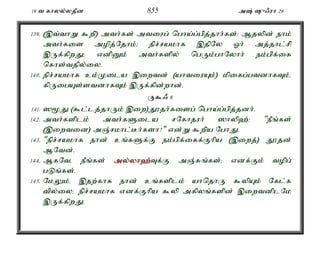 19 வ காலல்லதீன 855 அஷ் ஷுஃரா 26
139. (இவ்வாறு கூறி) அவர்கள் அவரைப் பொய்ப்பித்தார்கள்; ஆதலின் நாம்
அவர்களை அழித்தோம்; நிச்சயமாக இதிலே ஓர் அத்தாட்சி
இருக்கிறது; எனினும் அவர்களில் பெரும்பாலோர் நம்பிக்கை
கொள்வதில்லை.
140. நிச்சயமாக உம்முடைய இறைவன் (யாவரையும்) மிகைப்பவனாகவும்,
கிருபையுள்ளவனாகவும் இருக்கின்றான்.
ருகூஃ 8
141. ஸமூது (கூட்டத்தாரும் இறை)தூதர்களைப் பொய்ப்பித்தனர்.
142. அவர்களிடம் அவர்களுடைய சகோதரர் ஸாலிஹ்: "நீங்கள்
(இறைவனை) அஞ்சமாட்டீர்களா?" என்று கூறிய போது,
143. "நிச்சயமாக நான் உங்களுக்கு நம்பிக்கைக்குரிய (இறைத்) தூதன்
ஆவேன்.
144. ஆகவே, நீங்கள் அல்லாஹ்வுக்கு அஞ்சுங்கள்; எனக்கும் வழிப்
படுங்கள்.
145. மேலும், இதற்காக நான் உங்களிடம் யாதொரு கூலியும் கேட்க
வில்லை; நிச்சயமாக எனக்குரிய கூலி அகிலங்களின் இறைவனிடமே
இருக்கிறது.